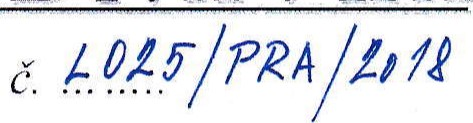 č. L025/PRA/2018